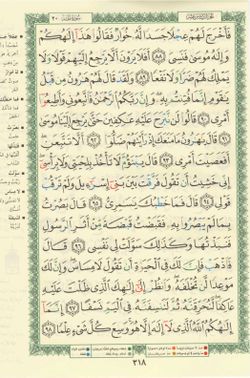 فَأَخْرَجَ لَهُمْ عِجْلًا جَسَدًا لَّهُۥ خُوَارٌ فَقَالُوا۟ هَٰذَآ إِلَٰهُكُمْ
وَإِلَٰهُ مُوسَىٰ فَنَسِىَ ﴿٨٨﴾ أَفَلَا يَرَوْنَ أَلَّا يَرْجِعُ إِلَيْهِمْ قَوْلًا وَلَا
يَمْلِكُ لَهُمْ ضَرًّا وَلَا نَفْعًا ﴿٨٩﴾ وَلَقَدْ قَالَ لَهُمْ هَٰرُونُ مِن قَبْلُ
يَٰقَوْمِ إِنَّمَا فُتِنتُم بِهِۦ وَإِنَّ رَبَّكُمُ ٱلرَّحْمَٰنُ فَٱتَّبِعُونِى وَأَطِيعُوٓا۟
أَمْرِى ﴿٩٠﴾ قَالُوا۟ لَن نَّبْرَحَ عَلَيْهِ عَٰكِفِينَ حَتَّىٰ يَرْجِعَ إِلَيْنَا مُوسَىٰ
﴿٩١﴾ قَالَ يَٰهَٰرُونُ مَا مَنَعَكَ إِذْ رَأَيْتَهُمْ ضَلُّوٓا۟ ﴿٩٢﴾ أَلَّا تَتَّبِعَنِ
أَفَعَصَيْتَ أَمْرِى ﴿٩٣﴾ قَالَ يَبْنَؤُمَّ لَا تَأْخُذْ بِلِحْيَتِى وَلَا بِرَأْسِىٓ
إِنِّى خَشِيتُ أَن تَقُولَ فَرَّقْتَ بَيْنَ بَنِىٓ إِسْرَٰٓءِيلَ وَلَمْ تَرْقُبْ
قَوْلِى ﴿٩٤﴾ قَالَ فَمَا خَطْبُكَ يَٰسَٰمِرِىُّ ﴿٩٥﴾ قَالَ بَصُرْتُ
بِمَا لَمْ يَبْصُرُوا۟ بِهِۦ فَقَبَضْتُ قَبْضَةً مِّنْ أَثَرِ ٱلرَّسُولِ
فَنَبَذْتُهَا وَكَذَٰلِكَ سَوَّلَتْ لِى نَفْسِى ﴿٩٦﴾ قَالَ
فَٱذْهَبْ فَإِنَّ لَكَ فِى ٱلْحَيَوٰةِ أَن تَقُولَ لَا مِسَاسَ وَإِنَّ لَكَ
مَوْعِدًا لَّن تُخْلَفَهُۥ وَٱنظُرْ إِلَىٰٓ إِلَٰهِكَ ٱلَّذِى ظَلْتَ عَلَيْهِ
عَاكِفًا لَّنُحَرِّقَنَّهُۥ ثُمَّ لَنَنسِفَنَّهُۥ فِى ٱلْيَمِّ نَسْفًا ﴿٩٧﴾ إِنَّمَآ
إِلَٰهُكُمُ ٱللَّهُ ٱلَّذِى لَآ إِلَٰهَ إِلَّا هُوَ وَسِعَ كُلَّ شَىْءٍ عِلْمًا ﴿٩٨﴾
٣١٨